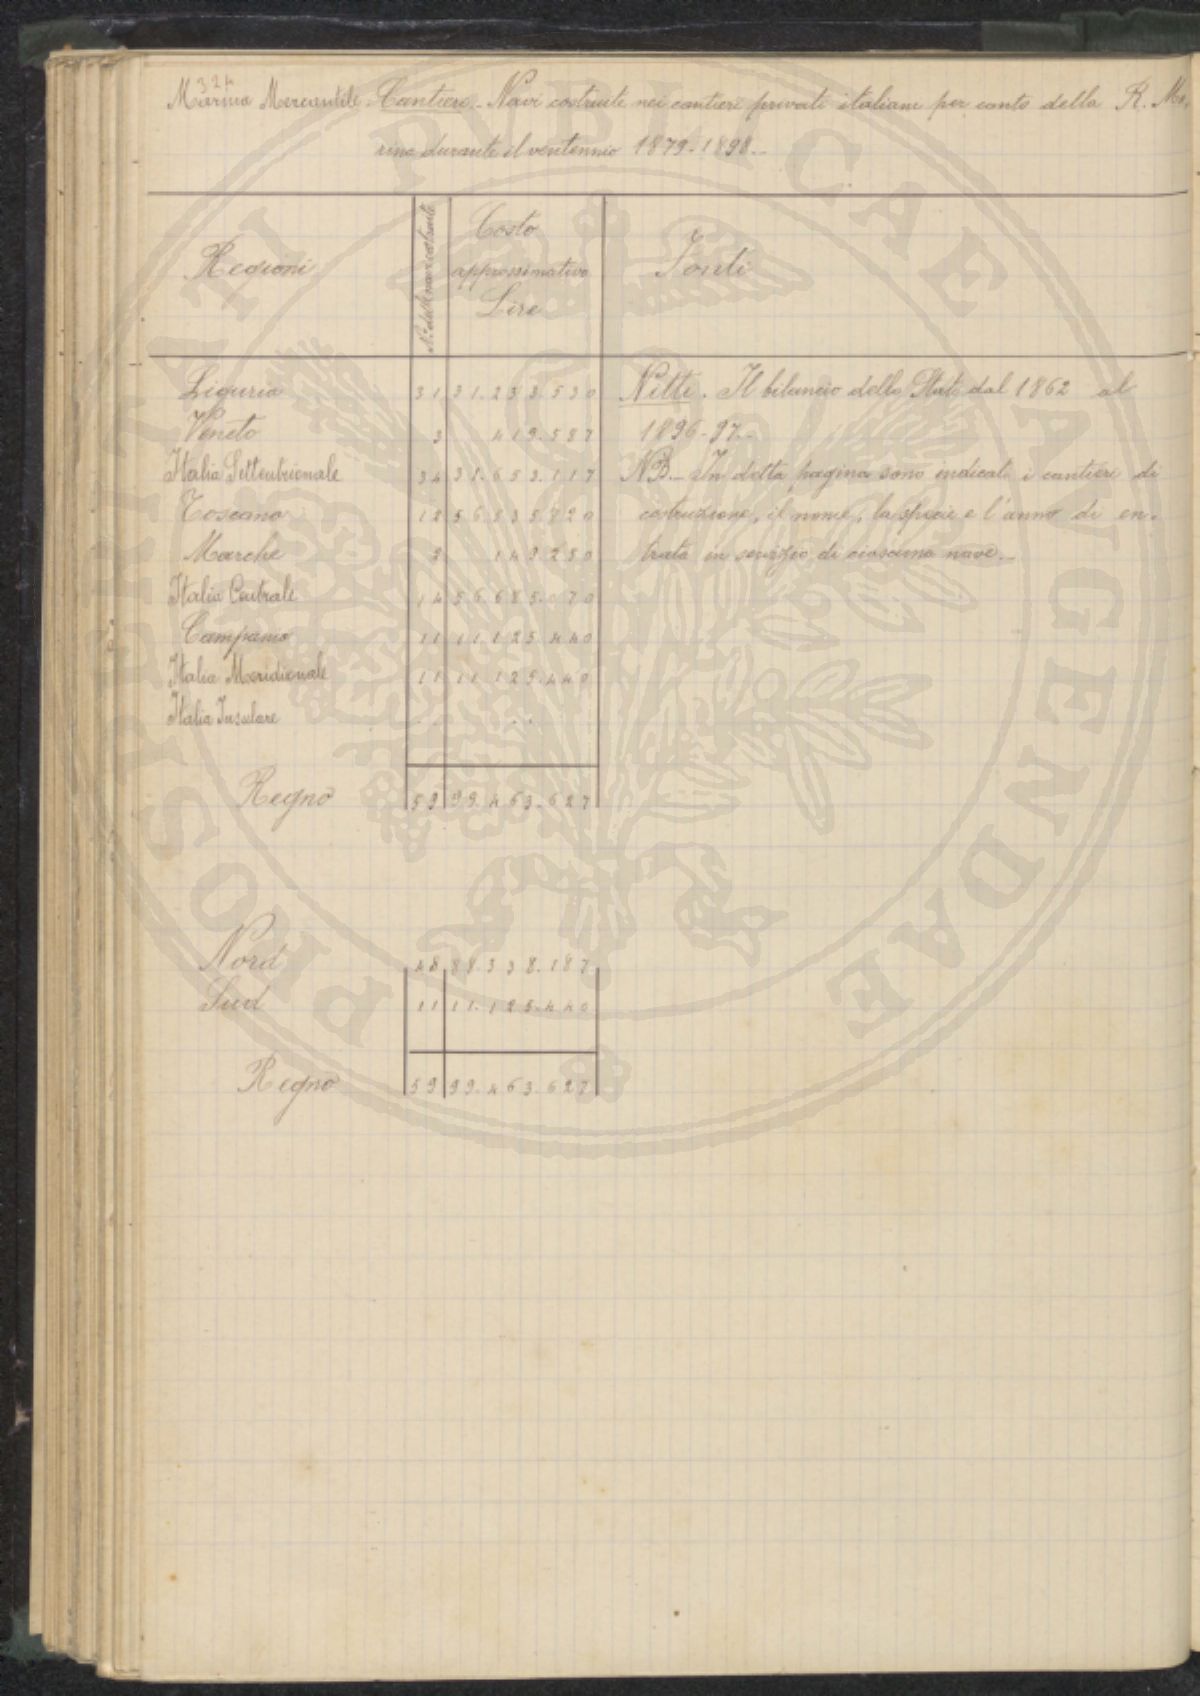 324
Marina Mercantile - Cantieri - Navi costruite nei cantieri privati italiani per conto della R. Ma-
rina durante il ventennio 1879-1898.-
Regioni
N.º delle navi costruite
Costo
approssimativo
Lire
Fonti
Liguria 31 31.233.530 Nitti. Il bilancio dello Stato dal 1862 al
Veneto 3 419.587 1896-97.-
Italia Settentrionale 34 31.653.117 NB.- In detta pagina sono indicati i cantieri di
Toscana 12 56.535.820 costruzione, il nome, la specie e l'anno di en-
Marche 2 149.250 trata in servizio di ciascuna nave.-
Italia Centrale 14 56.685.070
Campania 11 11.125.440
Italia Meridionale 11 11.125.440
Italia Insulare .. ..
Regno 59 99.463.627
Nord 48 88.338.187
Sud 11 11.125.440
Regno 59 99.463.627
PROSPERITATI PUBLICAE AVGENDAE